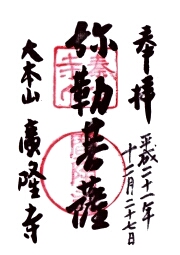 奉拝
平成二十一年
十二月二十七日
弥勒菩薩
大本山
廣隆寺